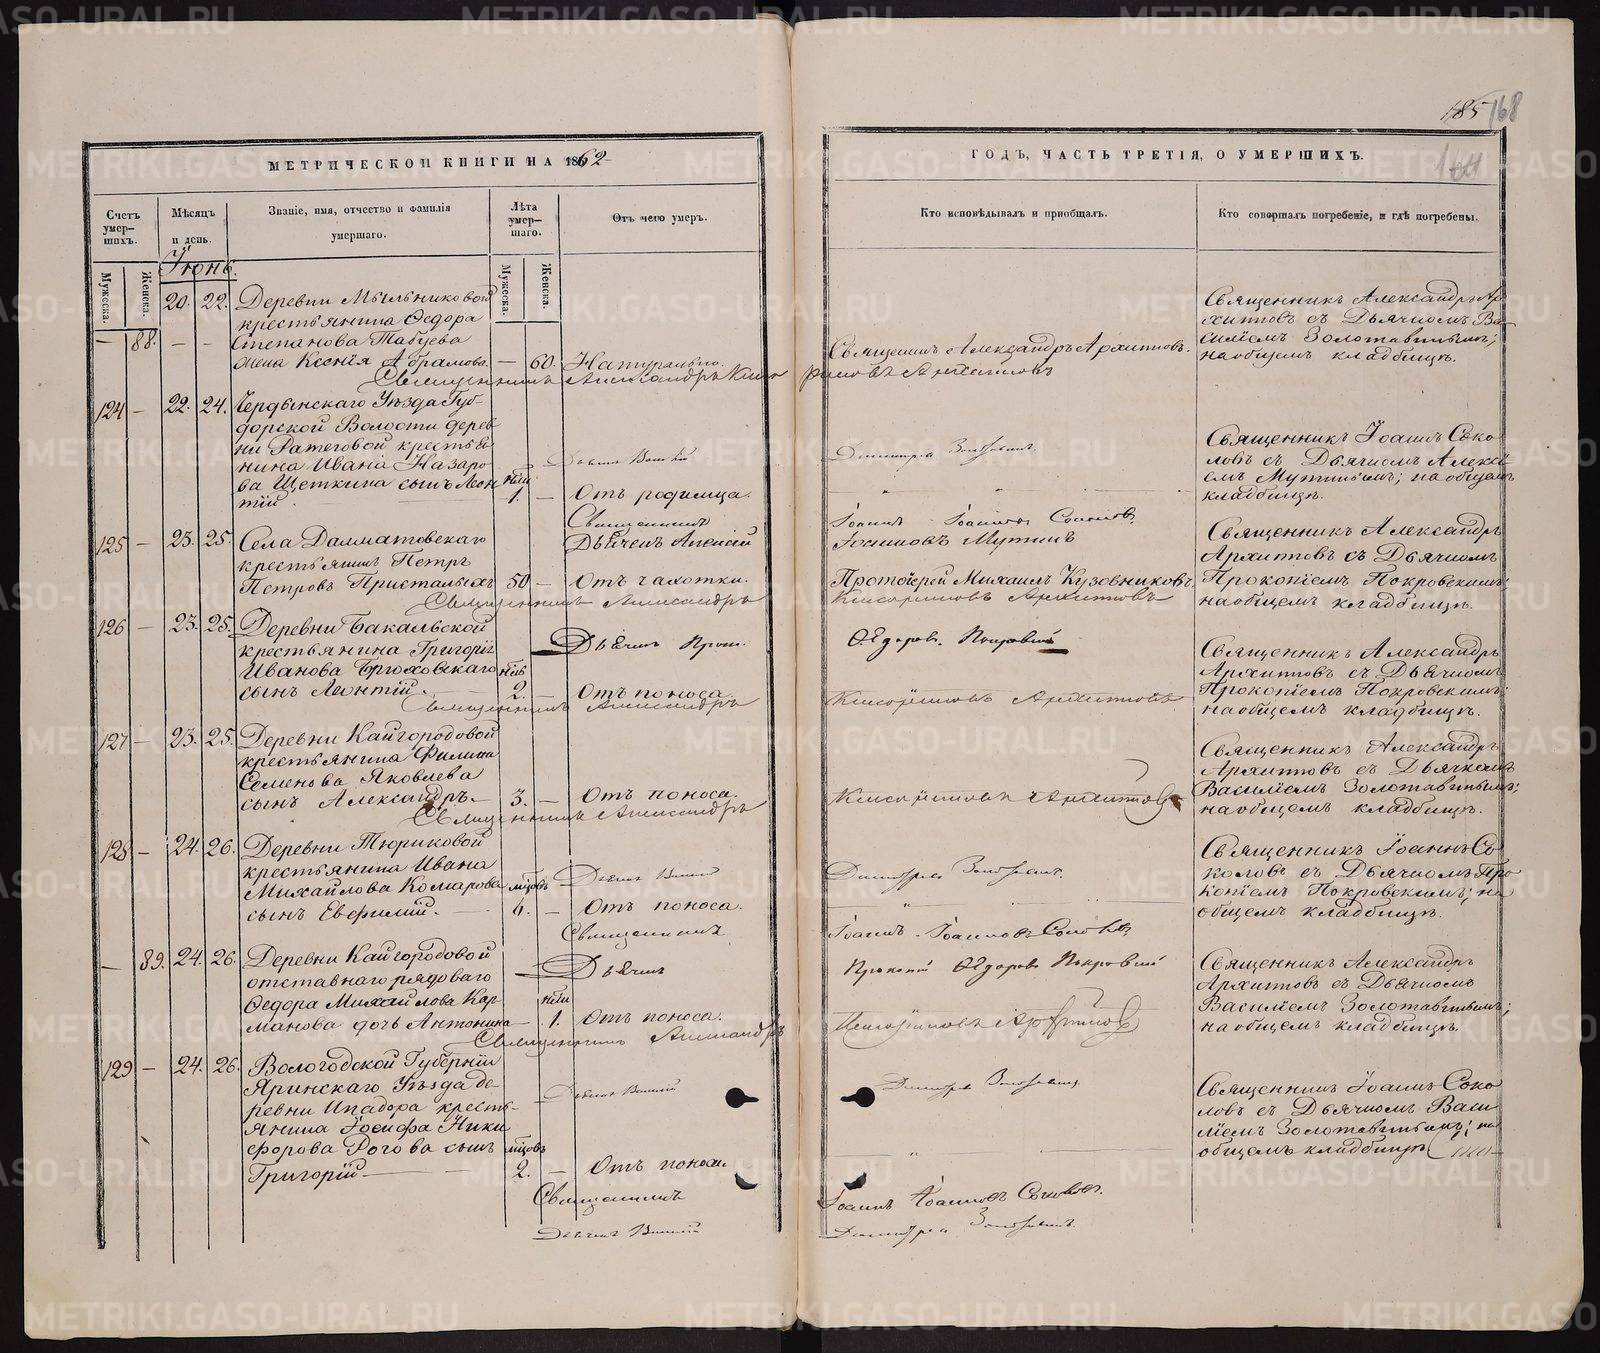 185 168
МЕТРИЧЕСКОЙ КНИГИ НА 1862
ГОДЪ, ЧАСТЬ ТРЕТІЯ, О УМЕРШИХЪ.
Счетъ умер-
шихъ.
Мѣсяцъ
и день.
Званіе, имя, отчество и фамилія
умершаго.
Лѣта
умер-
шаго.
Отъ чего умеръ.
Кто исповѣдывалъ и пріобщалъ.
Кто совершалъ погребеніе, и гдѣ погребены.
Мужеска.
Женска.
Іюнь.
Мужеска.
Женска.
— 88. 20. 22. Деревни Мыльниковой
крестьянина Ѳедора
Степанова Табуева
жена Ксенія Абрамова. — 60. Натурально.
Священникъ Александръ Архиповъ.
Священникъ Александръ Ар-
хиповъ съ Дьячкомъ Ва-
силіемъ Золотавинымъ;
на общемъ кладбищѣ.
Священникъ Александръ
124 — 22. 24. Чердынскаго Уѣзда Губ-
дорской Волости дерев-
ни Ратеговой крестья-
нина Ивана Назаро-
ва Щеткина сынъ Леон-
тій. 1. — Отъ родимца.
Священникъ Іоаннъ Соко-
ловъ съ Дьячкомъ Алексѣ-
емъ Мутинымъ; на общемъ
кладбищѣ.
Священникъ
Іоаннъ Іоанновъ Соколовъ.
Дьячекъ Алексій
Мутинъ
125 — 23. 25. Села Далматовскаго
крестьянинъ Петръ
Петровъ Пристальихъ 50 — Отъ чахотки.
Протоіерей Михаилъ Кузовниковъ.
Священникъ Александръ
Архиповъ съ Дьячкомъ
Прокопіемъ Покровскимъ;
на общемъ кладбищѣ.
Священникъ Александръ
Архиповъ
126 — 23. 25. Деревни Бакальской
крестьянина Григорія
Иванова Брюховскаго
сынъ Леонтій. 2. — Отъ поноса.
Дьячекъ Прок.
Ѳедоровъ Покровскій
Священникъ Александръ
Архиповъ съ Дьячкомъ
Прокопіемъ Покровскимъ;
на общемъ кладбищѣ.
Священникъ Александръ
Архиповъ
127 — 23. 25. Деревни Кайгородовой
крестьянина Филипа
Семенова Яковлева
сынъ Александръ. — 3. — Отъ поноса.
Священникъ Александръ
Архиповъ съ Дьячкомъ
Василіемъ Золотавинымъ;
на общемъ кладбищѣ.
Священникъ Александръ
Архиповъ
128 — 24. 26. Деревни Тюриковой
крестьянина Ивана
Михайлова Комарова мѣсцовъ
сынъ Евфимій. — 6. — Отъ поноса.
Священникъ Іоаннъ Со-
коловъ съ Дьячкомъ Про-
копіемъ Покровскимъ; на
общемъ кладбищѣ.
Священникъ
Іоаннъ Іоанновъ Соколовъ
Дьячекъ
Прокопій Ѳедоровъ Покровскій
— 89. 24. 26. Деревни Кайгородовой
отставнаго рядоваго
Ѳедора Михайлова Кар-
манова дочь Антонина — 1. Отъ поноса.
Священникъ Александръ
Архиповъ съ Дьячкомъ
Василіемъ Золотавинымъ;
на общемъ кладбищѣ
Священникъ Александръ
Архиповъ
129 — 24. 26. Вологодской Губерніи
Яринскаго Уѣзда де-
ревни Ипадора кресть-
янина Іосифа Ники-
форова Рогова сынъ мѣсцовъ
Григорій — 2. — Отъ поноса.
Священникъ Іоаннъ Соко-
ловъ съ Дьячкомъ Васи-
ліемъ Золотавинымъ; на
общемъ кладбищѣ
Священникъ
Іоаннъ Іоанновъ Соколовъ.
METRIKI.GASO-URAL.RU